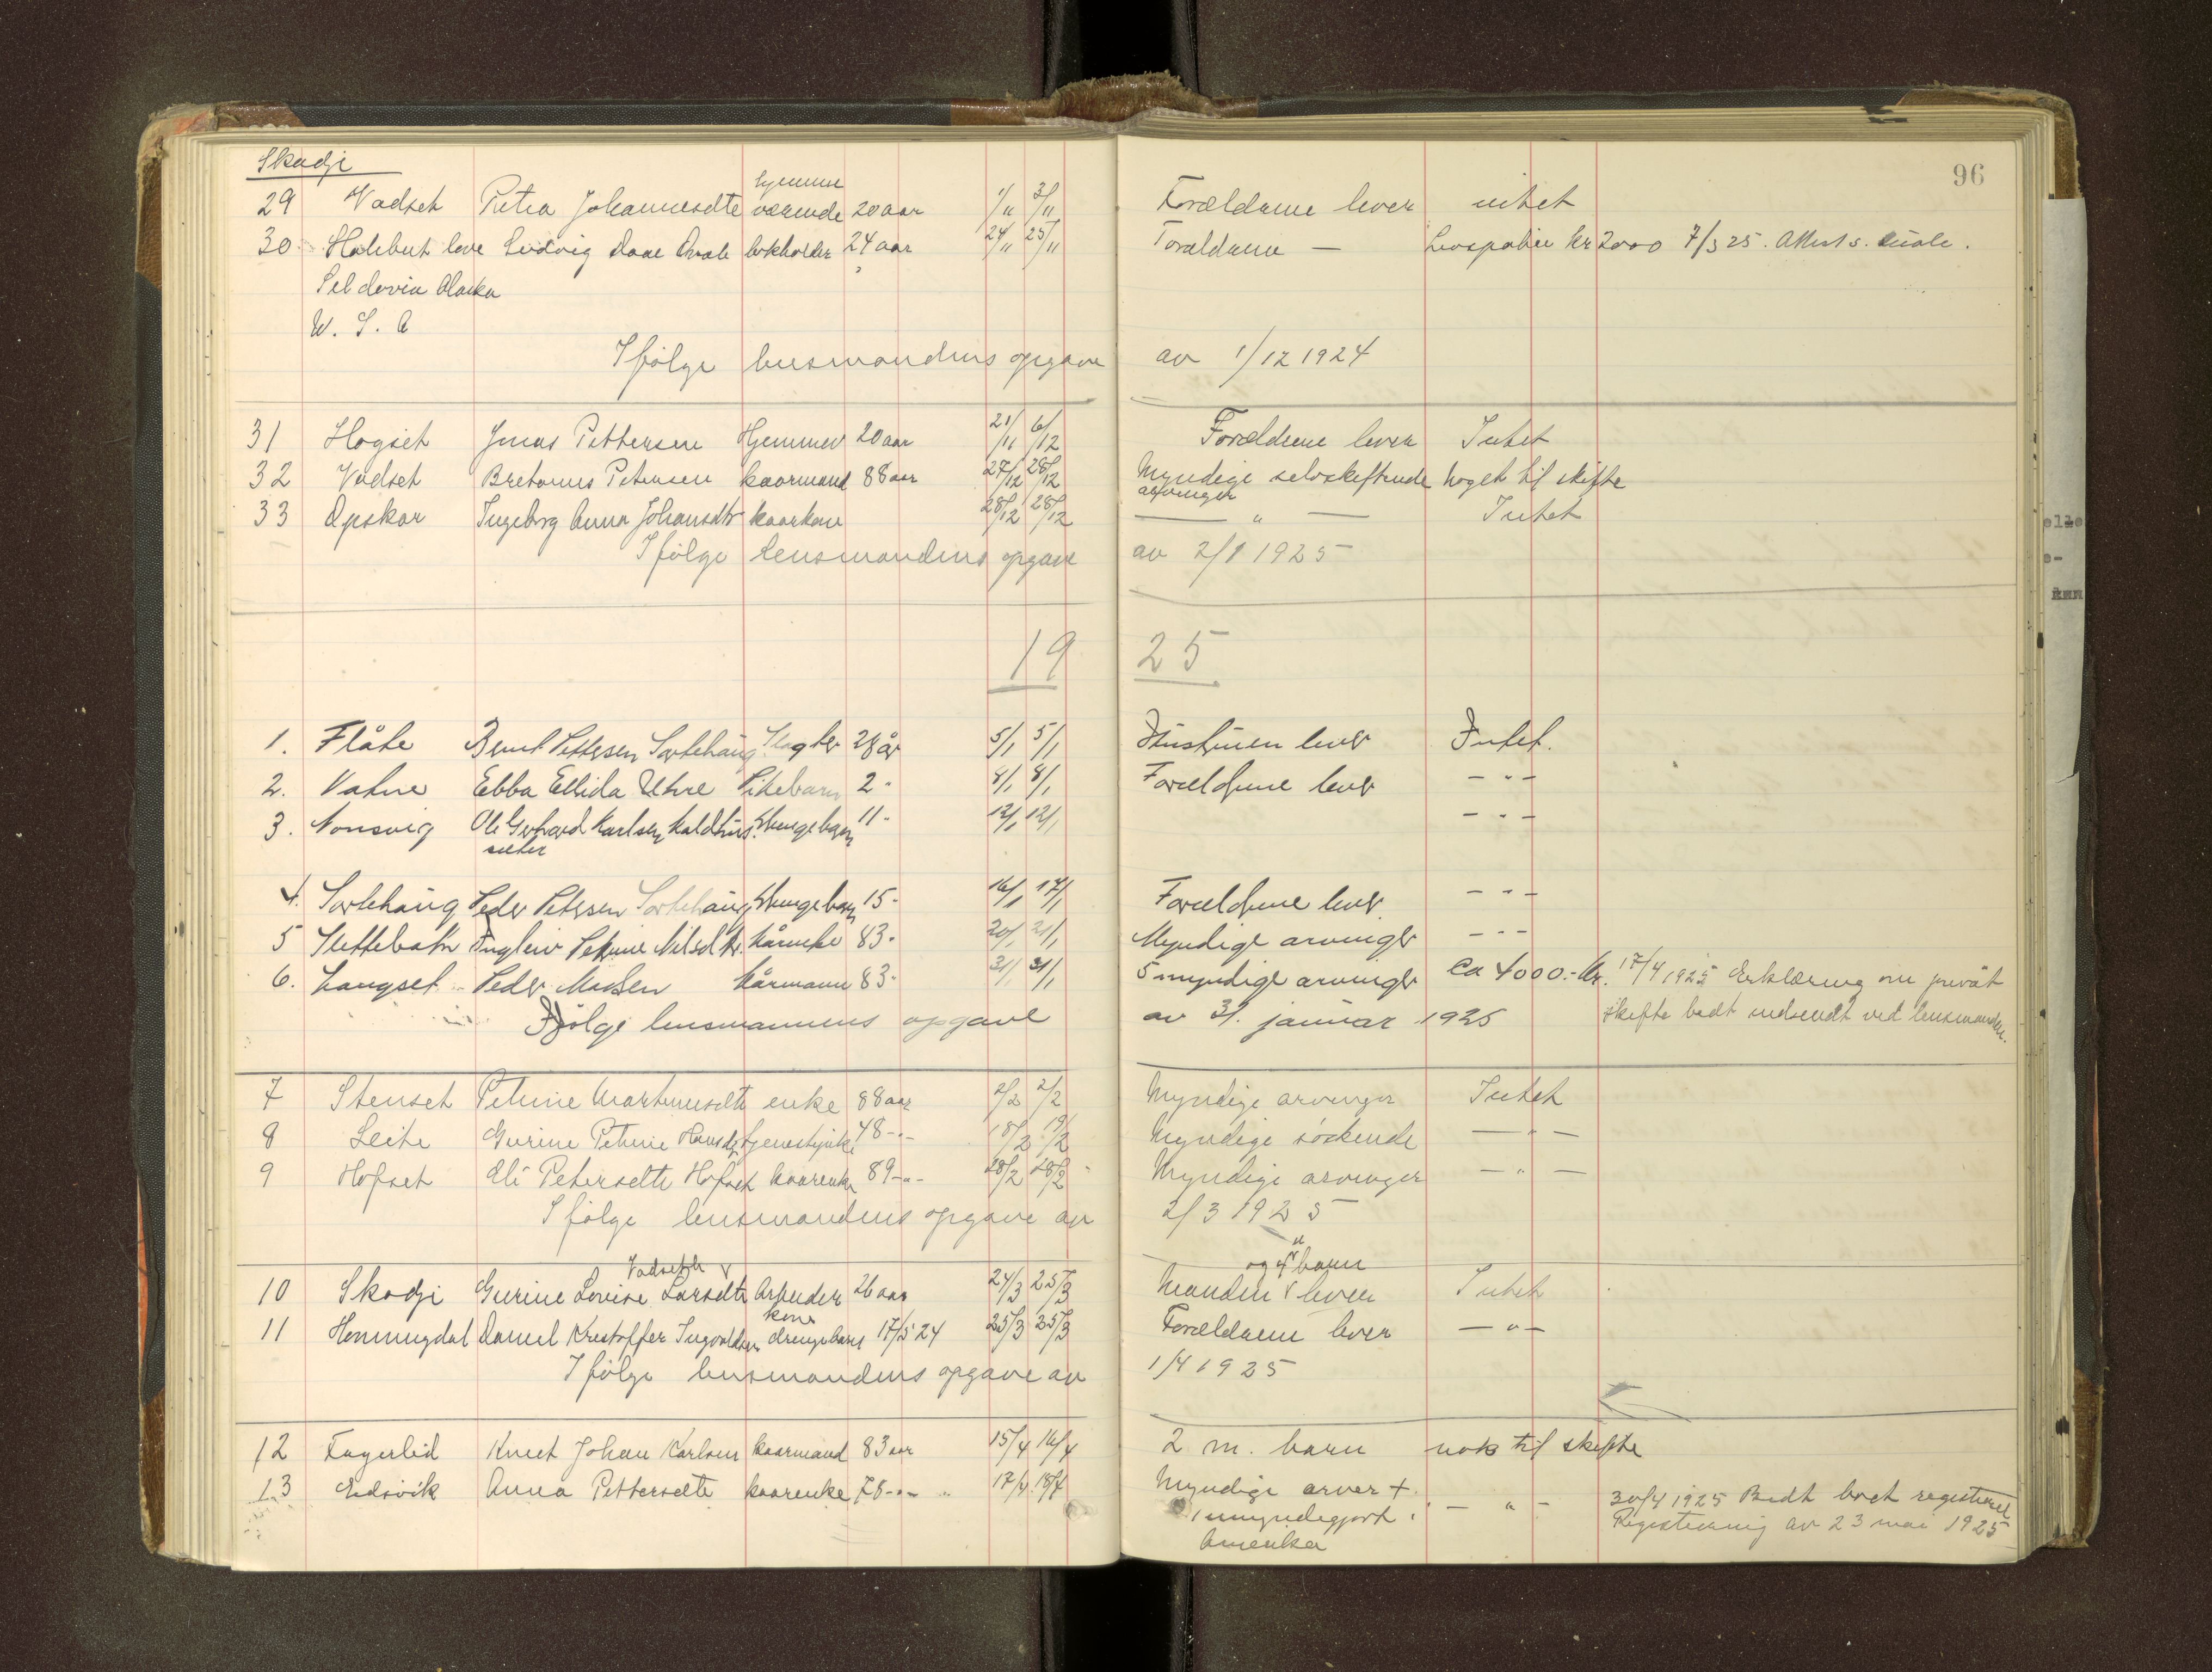 96
Skodje
hjemme
29 Vadset Petra Johannesdtr værende 20 aar 1/11 3/11 Forældrene lever intet
30 Halibut cove Ludvig Daae Hvale bokholder 24 aar 24/11 25/11 Forældrene — Livspolise kr 2000 7/3 25. Attest s.
Seldovia Alaska
U. S. A
Ifølge lensmandens opgave av 1/12 1924
31 Hogset Jonas Pettersen Hjemmev 20 aar 21/11 6/12 Forældrene lever Intet
32 Vadset Bretanus Petersen kaarmand 88 aar 27/12 28/12 Myndige selvskiftende noget til skifte
arvinger
33 Opskar Ingeborg Anna Johansdtr kaarkone 28/12 28/12 — " — Intet
Ifølge lensmandens opgave av 2/1 1925
19 25
1. Flåte Bernt Pettersen Sortehaug 28 år 5/1 5/1 Hustruen lever Intet.
2. Vatne Ebba Ellida Uhre Pikebarn 2 - 8/1 8/1 Forældrene lever - " -
3. Nonsvig Ole Gerhard Karlsen Kaldhus- Drengebarn 11 - 12/1 12/1 - " -
sæter
4. Sortehaug Peder Petersen Sortehaug Drengebarn 15 - 16/1 17/1 Forældrene lever - " -
5 Slettebakk Petrine Nilsdtr. kårenke 83 - 20/1 21/1 Myndige arvinger - " -
6. Langset Peder Madsen kårmann 83 - 31/1 31/1 5 myndige arvinger Ca 4000.- kr. 17/4 1925 Erklæring om privat
Ifølge lensmannens opgave av 31. januar 1925 skifte bedt indsendt ved lensmanden.
7 Stenset Petrine Martinusdtr enke 88 aar 2/2 2/2 Myndige arvinger Intet
8 Leite Gurine Petrine Hansdtr tjenestepike 48 - " - 18/2 19/2 Myndige søskende — " —
9 Hofset Eli Petersdtr Hofset kaarenke 89 - " - 28/2 28/2 Myndige arvinger — " —
Ifølge lensmandens opgave av 2/3 1925
Vadseth og 4 barn
10 Skodje Gurine Lovise Larsdtr Arbeider 26 aar 24/3 25/3 Manden lever Intet
kone
11 Honningdal Daniel Kristoffer Ingvaldsen drengebarn 17/5 24 25/3 25/3 Forældrene lever — " —
Ifølge lensmandens opgave av 1/4 1925
12 Fagerlid Knut Johan Karlsen kaarmand 83 aar 15/4 16/4 2 m. barn nok til skifte
13 Eidsvik Anna Pettersdtr kaarenke 78 - " - 17/4 18/4 Myndige arver + — " — 30/4 1925 Bedt boet registreret
1 umyndiggjort i Registrering av 23 mai 1925
Amerika